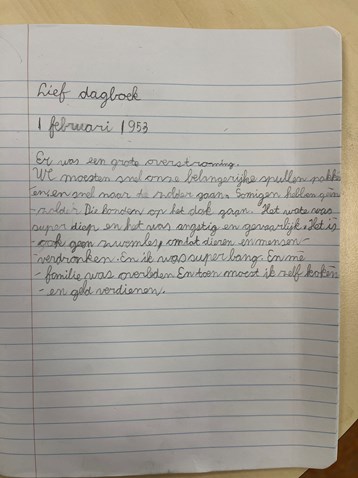 Lief dagboek
1 februari 1953
Er was een grote overstroming.
We moesten snel onze belangerijke spullen pakke
en en snel naar de zolder gaan. Somigen hebben geen
zolder. Die konden op het dak gaan. Het wate was
super diep en het was angstig en gevaarlijk. Het is
ook geen zwemles, omdat dieren en mensen
verdronken. En ik was super bang. En me
familie was overleden En toen moest ik zelf koken
en geld verdienen.